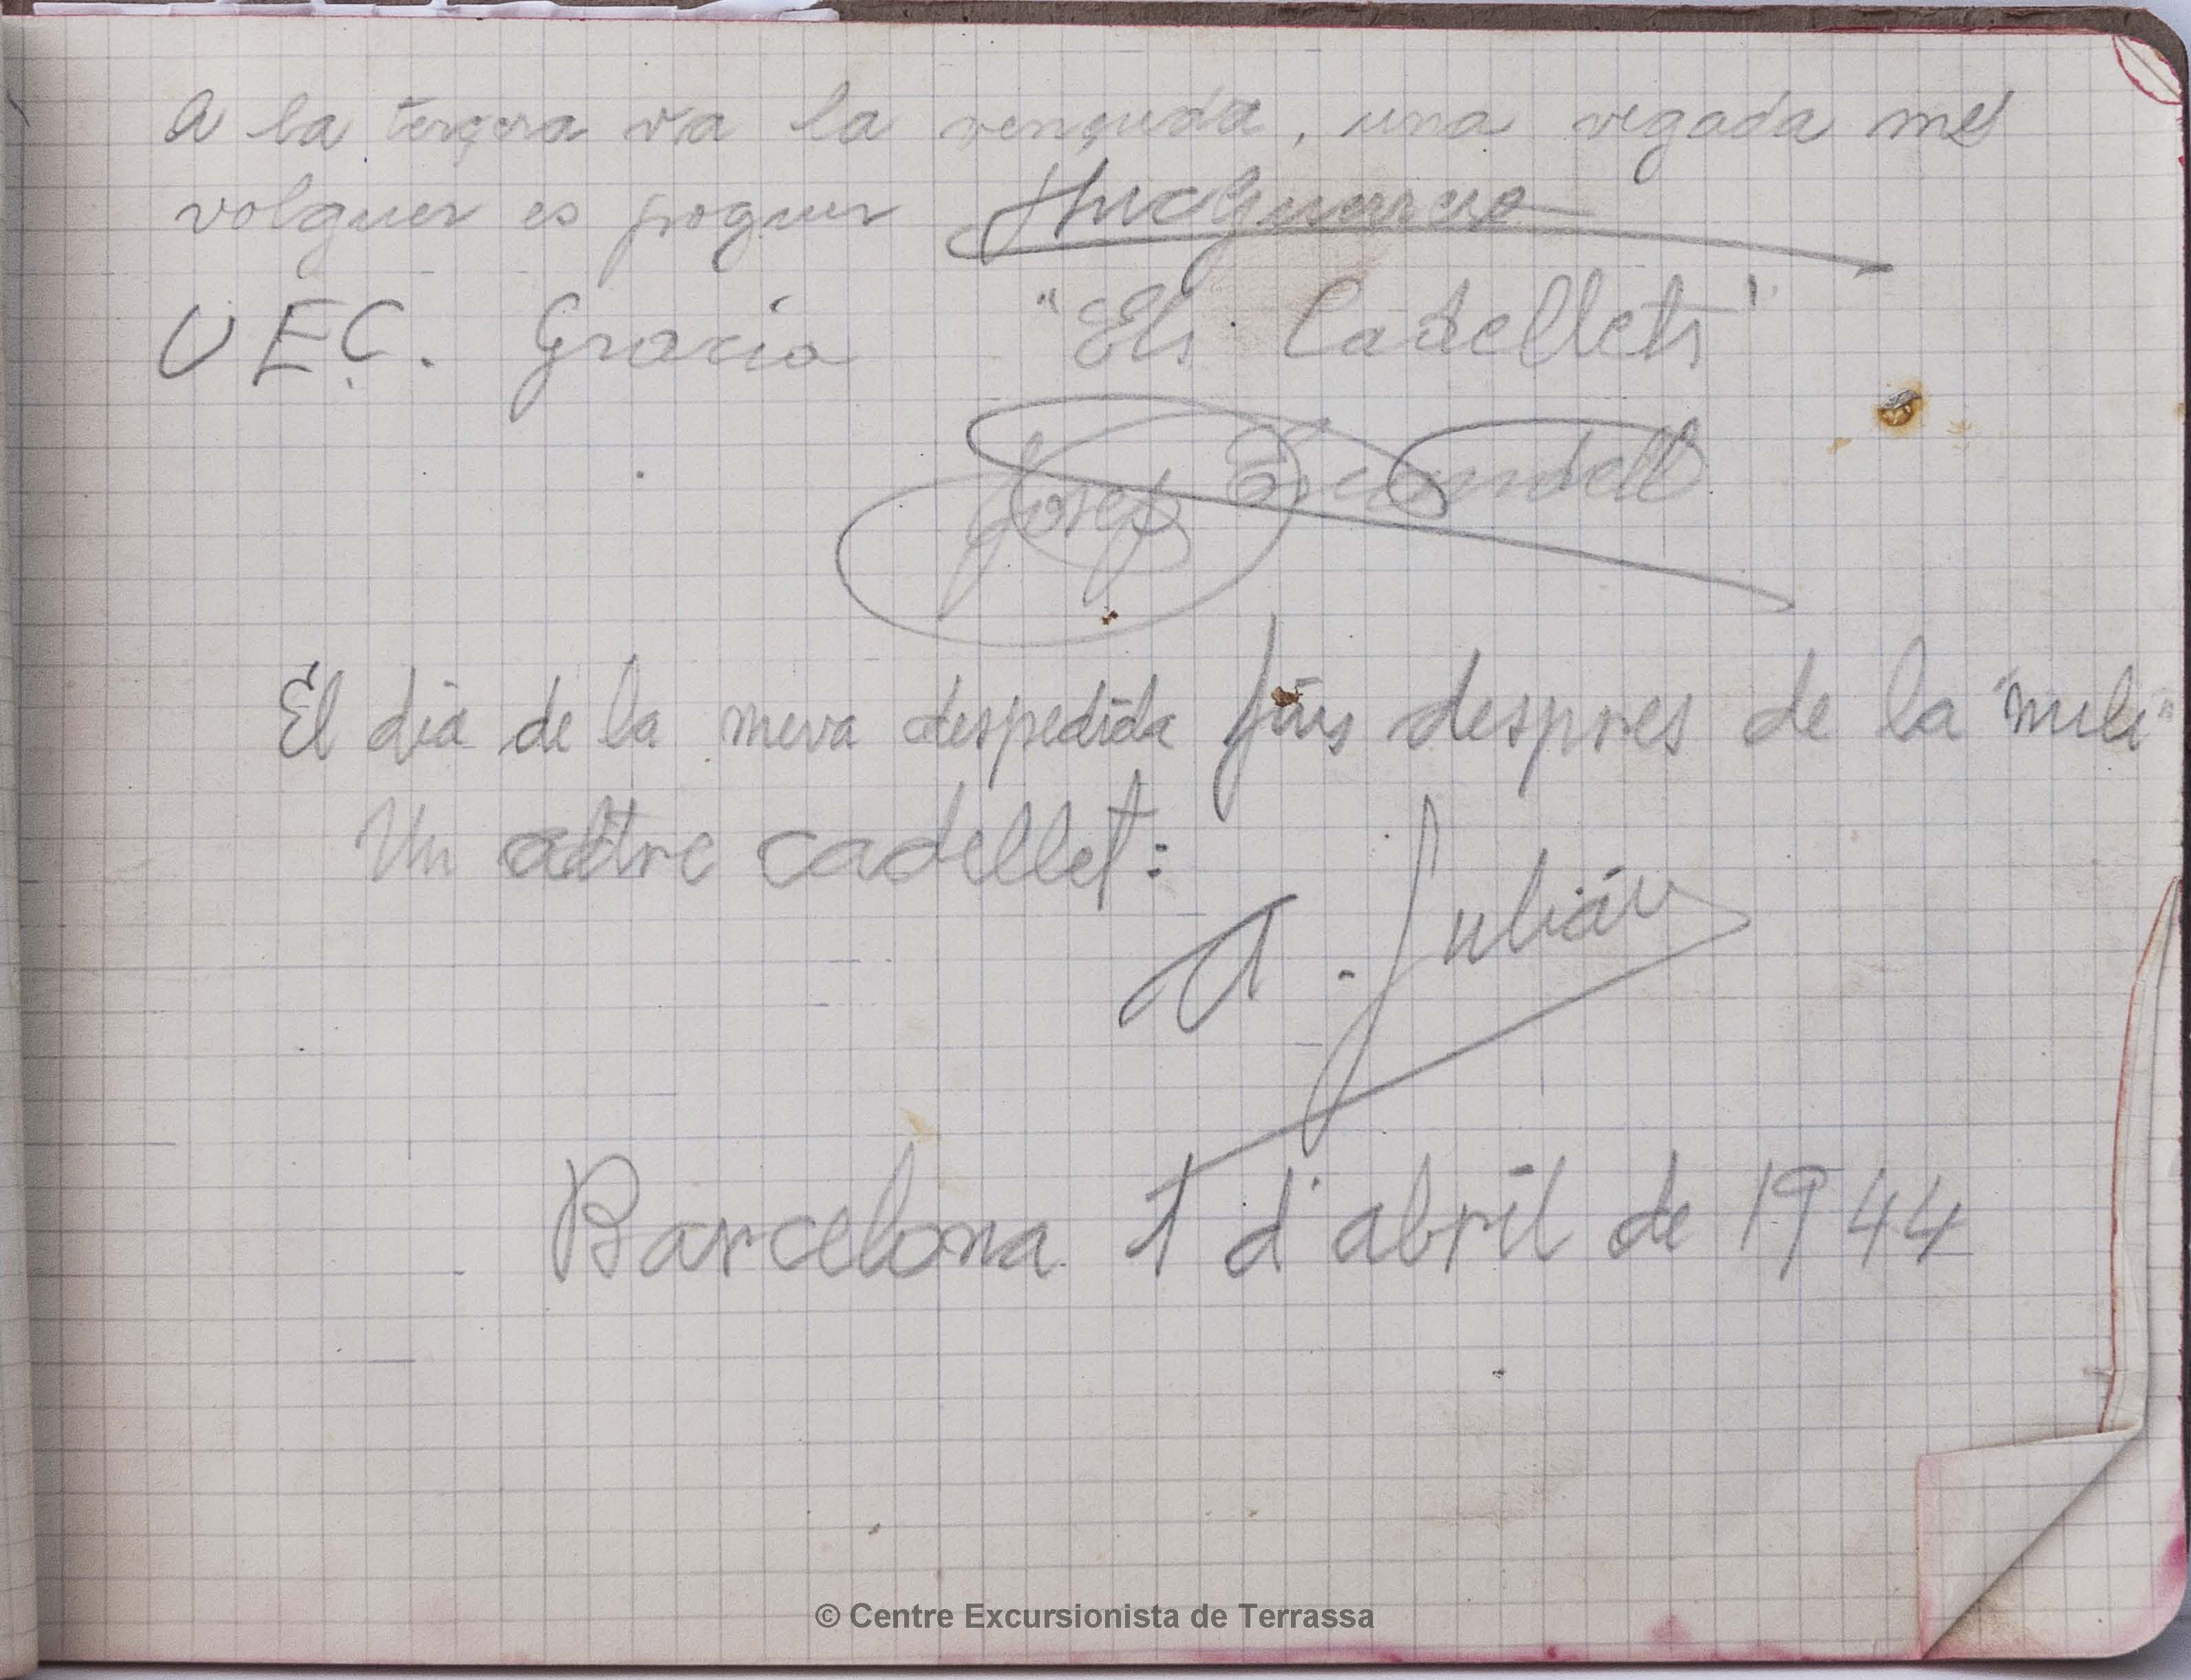 A la terçera va la vençuda, una vegada mes
volguer es poguer
UEC. Gracia "Els Cadellets"
Josep Escandell
El dia de la meva despedida fins despres de la "mili"
Un altre cadellet:
A. Julián
Barcelona 1 d'abril de 1944
© Centre Excursionista de Terrassa